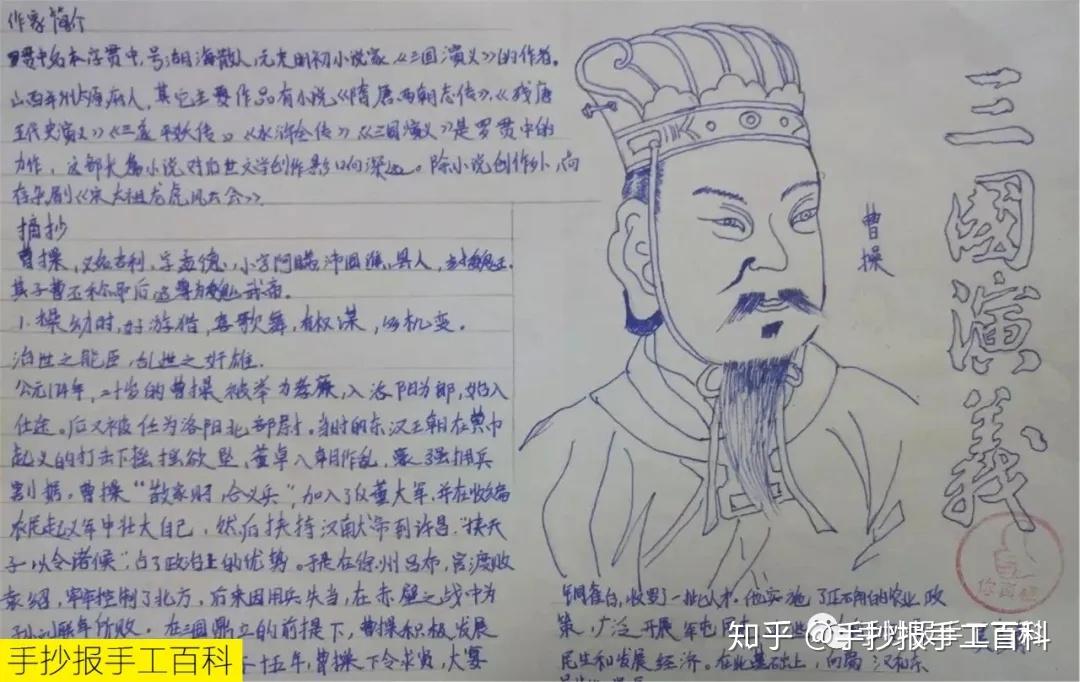 作家简介
罗贯中名本字贯中，号湖海散人，元末明初小说家，《三国演义》的作者。
山西并州太原府人，其它主要作品有小说《隋唐两朝志传》、《残唐
五代史演义》《三遂平妖传》、《水浒全传》《三国演义》是罗贯中的
力作，这部长篇小说对后世文学创作影响深远。除小说创作外，尚
存杂剧《宋太祖龙虎风云会》。
摘抄
曹操，又名吉利，字孟德，小字阿瞒，沛国谯县人，
其子曹丕称帝后，追尊为魏武帝。
1.操幼时，好游猎，喜歌舞，有权谋，多机变。
治世之能臣，乱世之奸雄。
公元174年，二十岁的曹操被举为孝廉，入洛阳为郎，始入
仕途。后又被任为洛阳北部尉。当时的东汉王朝在黄巾
起义的打击下摇摇欲坠，董卓入朝作乱，豪强拥兵
割据。曹操“散家财，合义兵”加入了仅董大军，并在收编
农民起义军中壮大自己，然后挟持汉献帝到许昌，“挟天
子以令诸候”占了政治上的优势。于是在徐州吕布，官渡败
袁绍，牢牢控制了北方，后来因用兵失当，在赤壁之战中为
孙刘联军所败。在三国鼎立的前提下，曹操积极发展
十五年，曹操下令求贤，大宴
三國演義
曹操
铜雀台，收罗了一批人才。他实施了正确的农业政
策，广泛开展军屯
民生和发展经济。在此基础上，向
手抄报手工百科
知乎 @手抄报手工百科